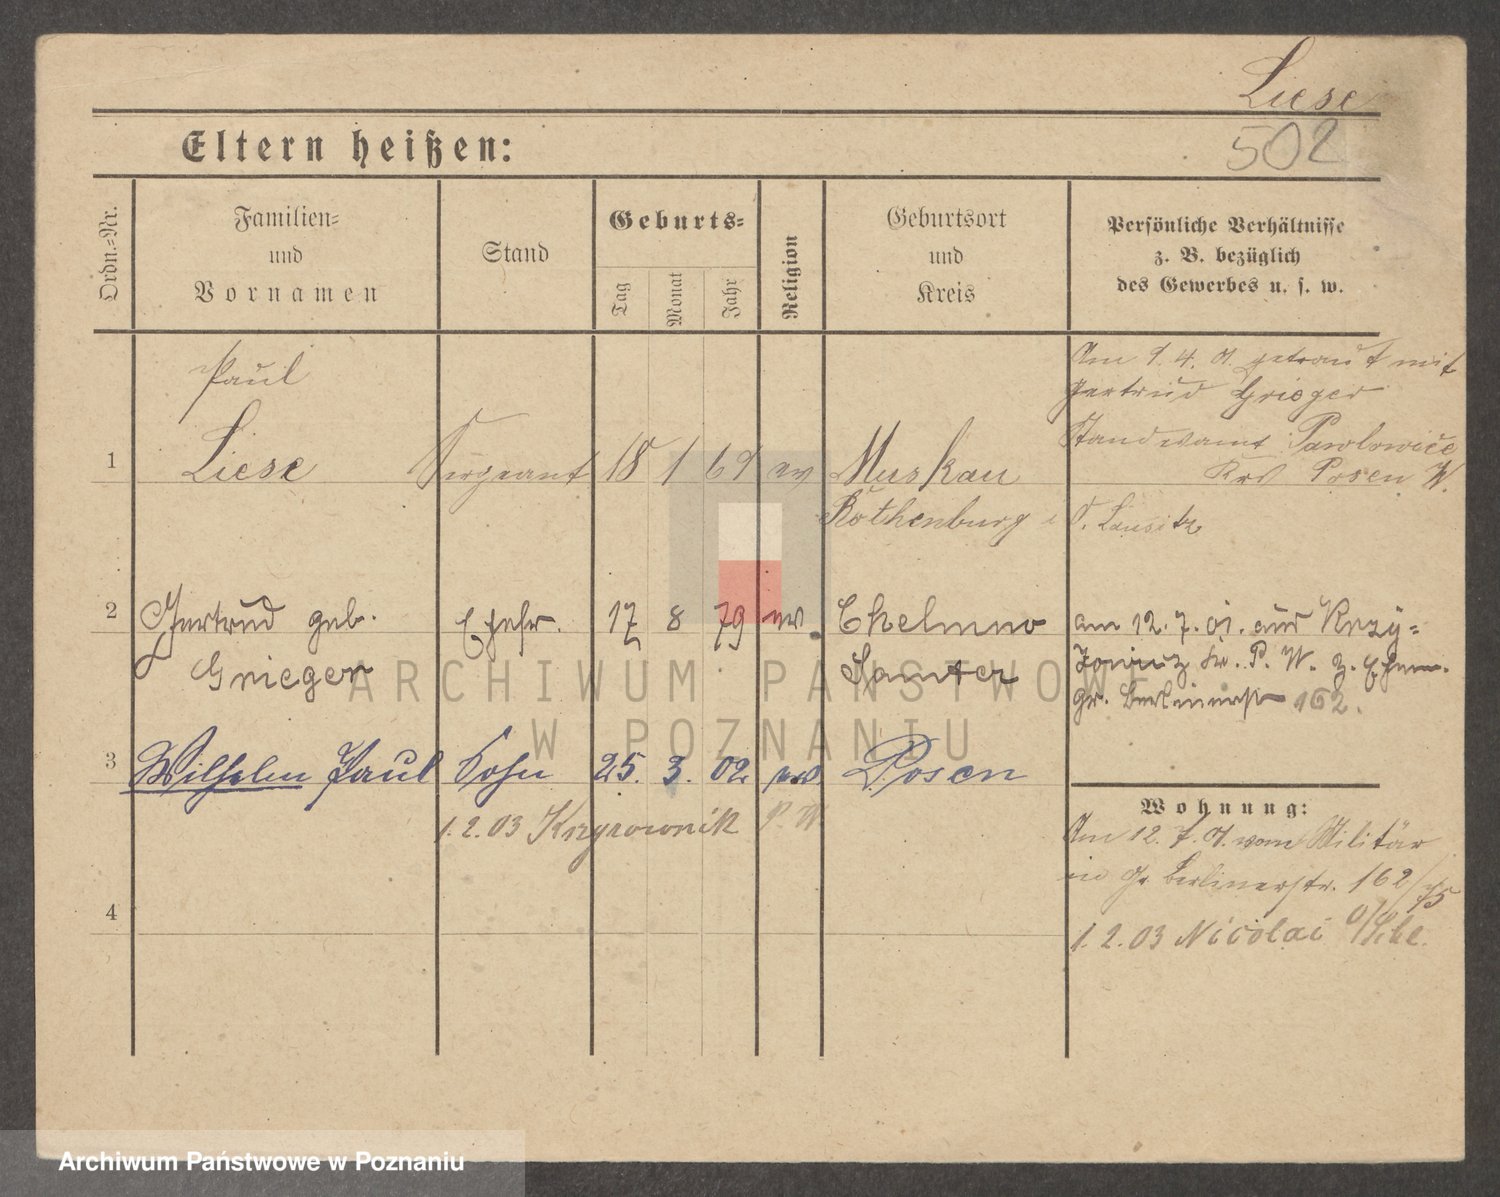 Liese
502
Eltern heißen:
Ordn.=Nr.
Familien=
und
Vornamen
Stand
Geburts=
Tag
Monat
Jahr
Religion
Geburtsort
und
Kreis
Persönliche Verhältnisse
z. B. bezüglich
des Gewerbes u. s. w.
1
Paul
Liese
Sergeant
18 1 69 ev
Muskau
Rothenburg i O. Lausitz
Am 9. 4. 01 getraut mit
Gertrud Grieger
Standesamt Pawlowice
Krs Posen W.
2
Gertrud geb.
Grieger
Ehefr.
17 8 79 ev
Chelmno
Samter
am 12. 7. 01. aus Krzy=
Kr. P. W. z. Ehem.
gr. Berlinerstr 162.
3
Wilhelm Paul
Sohn
25. 3. 02 ev
Posen
1. 2. 03 Krzyzownik P. W.
Wohnung:
Am 12. 7. 01 vom Militär
in Gr Berlinerstr. 162/75
1. 2. 03 Nicolai
4
ARCHIWUM PAŃSTWOWE
W POZNANIU
Archiwum Państwowe w Poznaniu